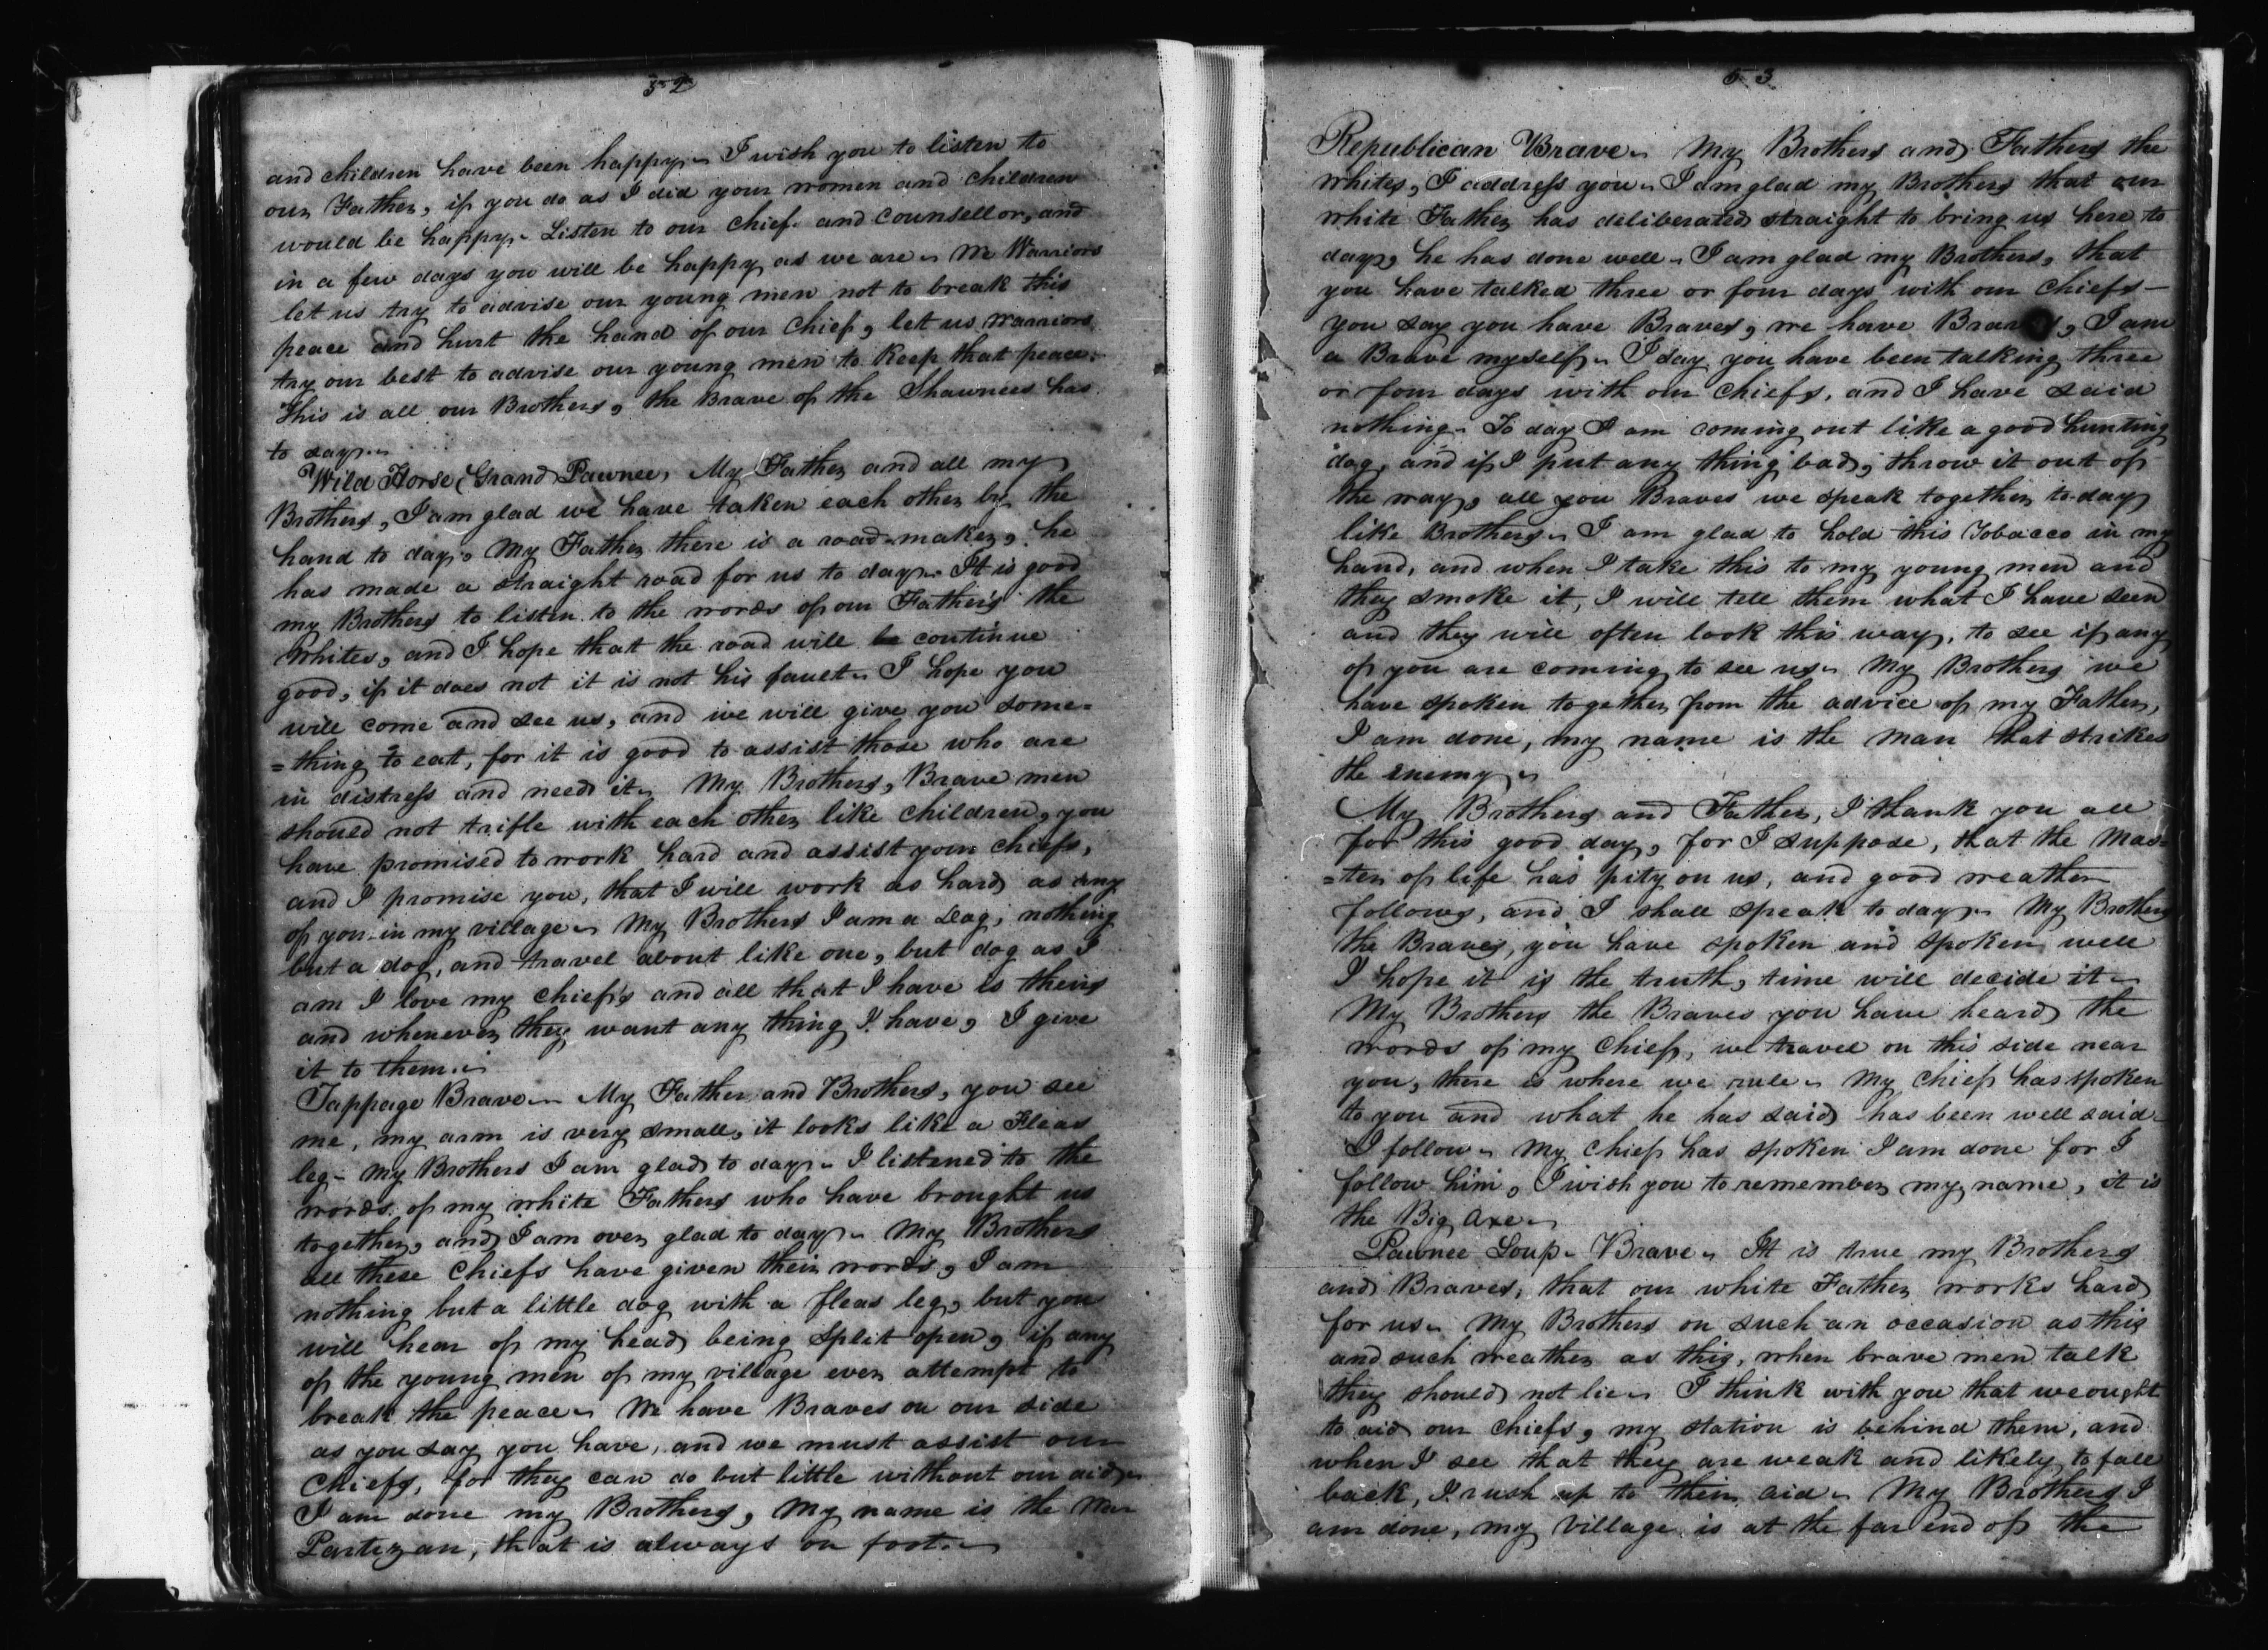 52
and children have been happy. I wish you to listen to
our Father, if you do as I did your women and children
would be happy. Listen to our Chief and Counsellor, and
in a few days you will be happy as we are. We Warriors
let us try to advise our young men not to break this
peace and hurt the hand of our Chief, let us warriors
try our best to advise our young men to keep that peace.
This is all our Brothers, the Brave of the Shawnees has
to say.
Wild Horse (Grand Pawnee, My Father and all my
Brothers, I am glad we have taken each other by the
hand to day, My Father there is a road-maker, he
has made a straight road for us to day. It is good
my Brothers to listen to the words of our Father's the
Whites, and I hope that the road will be continue
good, if it does not it is not his fault. I hope you
will come and see us, and we will give you some=
=thing to eat, for it is good to assist those who are
in distress and need it. My Brothers, Brave men
should not trifle with each other like children, you
have promised to work hard and assist your chiefs,
and I promise you, that I will work as hard as any
of you in my village. My Brothers I am a Dog, nothing
but a dog, and travel about like one, but dog as I
am I love my chiefs and all that I have is theirs
and whenever they want any thing I have, I give
it to them.
Tappage Brave. My Father and Brothers, you see
me, my arm is very small, it looks like a Fleas
leg. My Brothers I am glad to day. I listened to the
words of my white Fathers who have brought us
together, and I am over glad to day. My Brothers
all these Chiefs have given their words, I am
nothing but a little dog with a fleas leg, but you
will hear of my head being split open, if any
of the young men of my village ever attempt to
break the peace. We have Braves on our side
as you say you have, and we must assist our
Chiefs, for they can do but little without our aid.
I am done my Brothers, My name is the War
Partezan, that is always on foot.
53
Republican Brave. My Brothers and Fathers the
Whites, I address you. I am glad my Brothers that our
white Father has deliberated straight to bring us here to
day, he has done well. I am glad my Brothers, that
you have talked three or four days with our chiefs—
you say you have Braves, we have Braves, I am
a Brave myself. I say you have been talking three
or four days with our chiefs, and I have said
nothing. To day I am coming out like a good hunting
dog, and if I put any thing bad, throw it out of
the way, all you Braves we speak together to-day
like Brothers. I am glad to hold this Tobacco in my
hand, and when I take this to my young men and
they smoke it, I will tell them what I have seen
and they will often look this way, to see if any
of you are coming to see us. My Brothers we
have spoken together from the advice of my Father,
I am done, my name is the man that strikes
the enemy.
My Brothers and Father, I thank you all
for this good day, for I suppose, that the Mas=
=ter of life has pity on us, and good weather
follows, and I shall speak to day. My Brothers
the Braves, you have spoken and spoken well
I hope it is the truth, time will decide it.
My Brothers the Braves you have heard the
words of my Chief, we travel on this side near
you, there is where we rule. My chief has spoken
to you and what he has said has been well said
I follow. My chief has spoken I am done for I
follow him, I wish you to remember my name, it is
the Big Axe.
Pawnee Loup. Brave. It is true my Brothers
and Braves, that our white Father works hard
for us. My Brothers on such an occasion as this
and such weather as this, when brave men talk
they should not lie. I think with you that we ought
to aid our chiefs, my station is behind them, and
when I see that they are weak and likely to fall
back, I rush up to their aid. My Brothers I
am done, my Village is at the far end of the